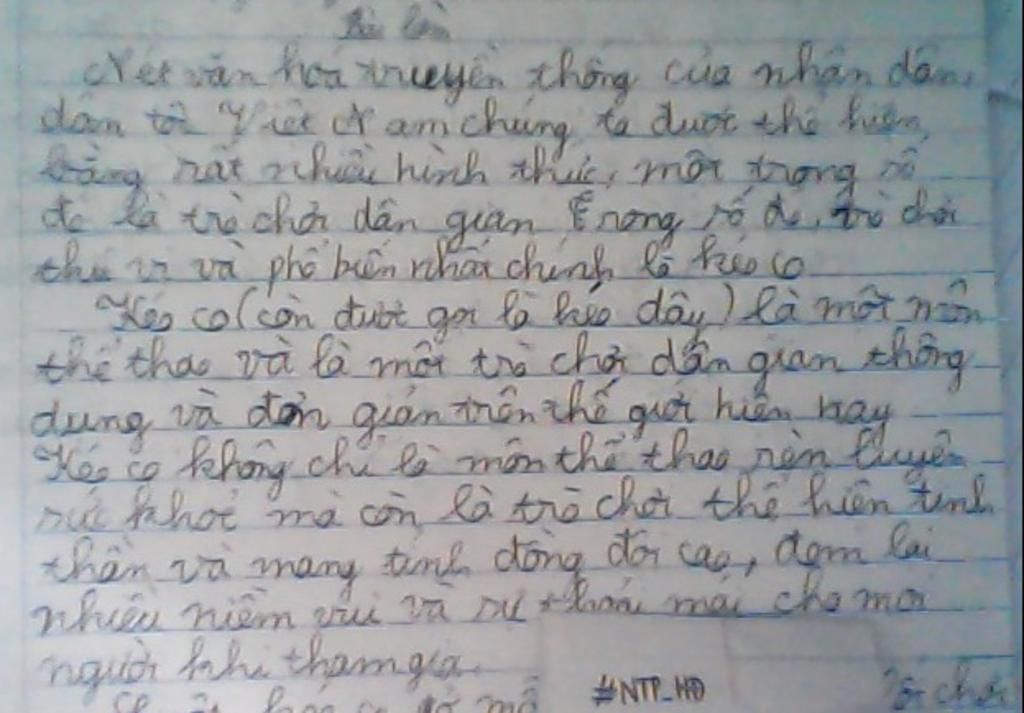 Bài làm
Nét văn hoá truyền thống của nhân dân,
dân tộ Việt Nam chúng ta được thể hiện
bằng rất nhiều hình thức, một trong số
đó là trò chơi dân gian Trong số đó, trò chơi
thú vị và phổ biến nhất chính là kéo co
Kéo co (còn được gọi là kéo dây) là một môn
thể thao và là một trò chơi dân gian thông
dụng và đơn giản trên thế giới hiện nay
Kéo co không chỉ là môn thể thao rèn luyện
sức khoẻ mà còn là trò chơi thể hiện tinh
thần và mang tính đồng đội cao, đem lại
nhiều niềm vui và sự thoải mái cho mọi
người khi tham gia.
#NTP_HĐ
chơi